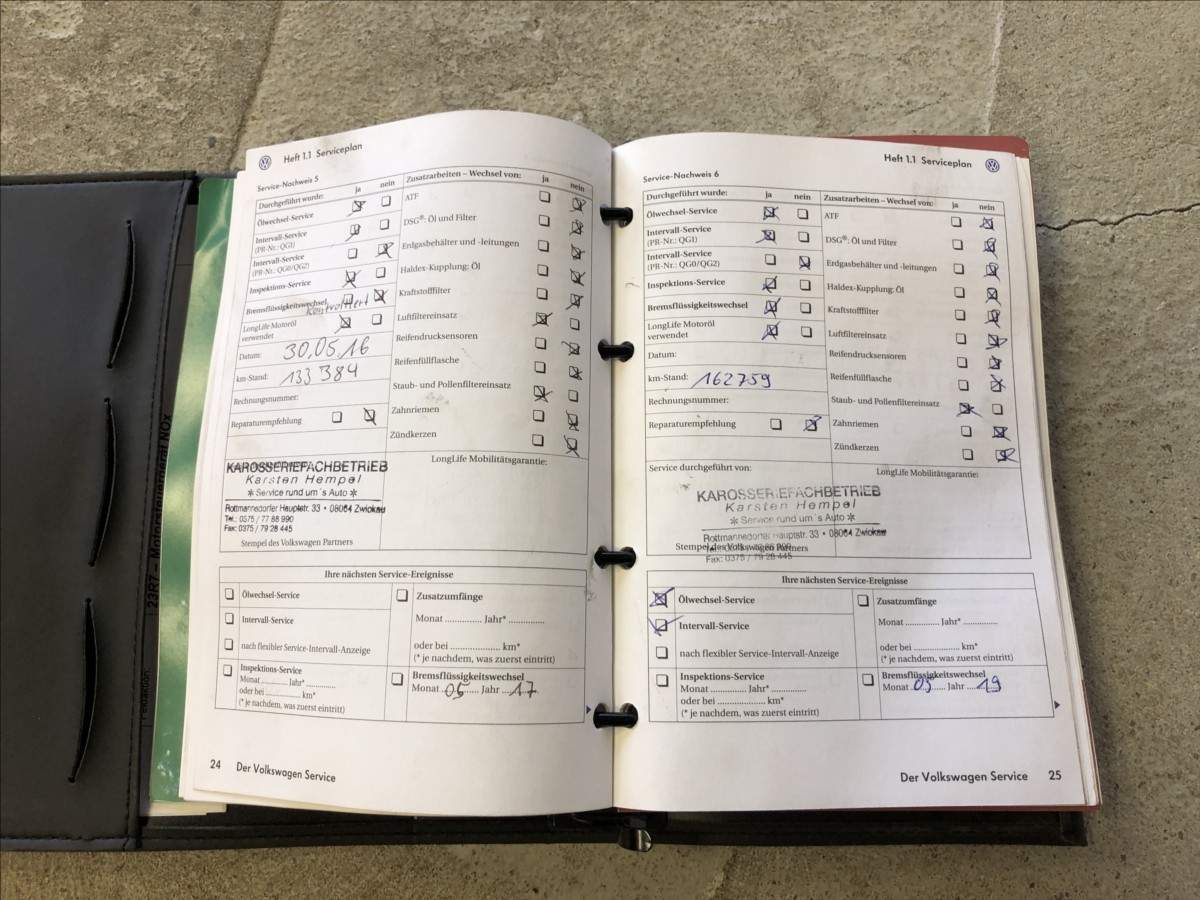 Heft 1.1 Serviceplan
Service-Nachweis 5
Durchgeführt wurde: ja nein
Ölwechsel-Service
Intervall-Service
(PR-Nr.: QG1)
Intervall-Service
(PR-Nr.: QG0/QG2)
Inspektions-Service
Bremsflüssigkeitswechsel
kontrolliert
LongLife Motoröl
verwendet
Datum: 30.05.16
km-Stand: 133 384
Rechnungsnummer:
Reparaturempfehlung
Zusatzarbeiten – Wechsel von: ja nein
ATF
DSG®: Öl und Filter
Erdgasbehälter und -leitungen
Haldex-Kupplung: Öl
Kraftstofffilter
Luftfiltereinsatz
Reifendrucksensoren
Reifenfüllflasche
Staub- und Pollenfiltereinsatz
Zahnriemen
Zündkerzen
KAROSSERIEFACHBETRIEB
Karsten Hempel
* Service rund um´s Auto *
Rottmannsdorfer Hauptstr. 33 • 08064 Zwickau
Tel.: 0375 / 77 88 990
Fax: 0375 / 79 28 445
Stempel des Volkswagen Partners
LongLife Mobilitätsgarantie:
Ihre nächsten Service-Ereignisse
Ölwechsel-Service
Intervall-Service
nach flexibler Service-Intervall-Anzeige
Inspektions-Service
Monat ......... Jahr* .........
oder bei .................. km*
(* je nachdem, was zuerst eintritt)
Zusatzumfänge
Monat ............. Jahr* .............
oder bei .................. km*
(* je nachdem, was zuerst eintritt)
Bremsflüssigkeitswechsel
Monat 05 Jahr 17
24 Der Volkswagen Service
Heft 1.1 Serviceplan
Service-Nachweis 6
Durchgeführt wurde: ja nein
Ölwechsel-Service
Intervall-Service
(PR-Nr.: QG1)
Intervall-Service
(PR-Nr.: QG0/QG2)
Inspektions-Service
Bremsflüssigkeitswechsel
LongLife Motoröl
verwendet
Datum:
km-Stand: 162759
Rechnungsnummer:
Reparaturempfehlung
Zusatzarbeiten – Wechsel von: ja nein
ATF
DSG®: Öl und Filter
Erdgasbehälter und -leitungen
Haldex-Kupplung: Öl
Kraftstofffilter
Luftfiltereinsatz
Reifendrucksensoren
Reifenfüllflasche
Staub- und Pollenfiltereinsatz
Zahnriemen
Zündkerzen
Service durchgeführt von:
KAROSSERIEFACHBETRIEB
Karsten Hempel
* Service rund um´s Auto *
Rottmannsdorfer Hauptstr. 33 • 08064 Zwickau
Stempel des Volkswagen Partners
Fax: 0375 / 79 28 445
LongLife Mobilitätsgarantie:
Ihre nächsten Service-Ereignisse
Ölwechsel-Service
Intervall-Service
nach flexibler Service-Intervall-Anzeige
Inspektions-Service
Monat ............. Jahr* .............
oder bei .................. km*
(* je nachdem, was zuerst eintritt)
Zusatzumfänge
Monat ............. Jahr* .............
oder bei .................. km*
(* je nachdem, was zuerst eintritt)
Bremsflüssigkeitswechsel
Monat 05 Jahr 19
Der Volkswagen Service 25